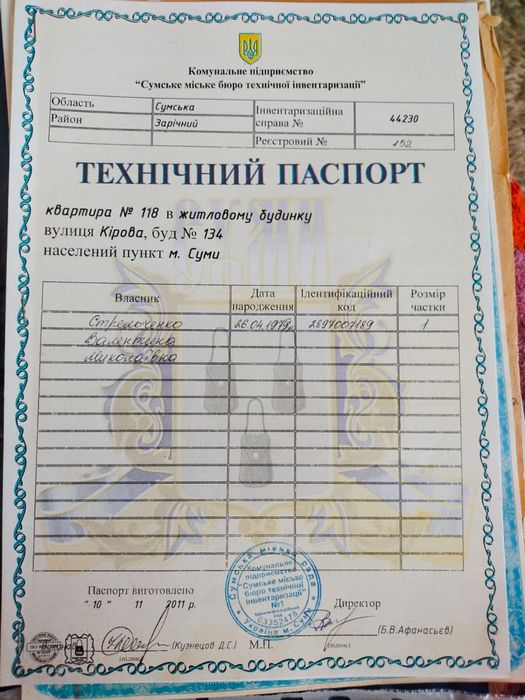 Комунальне підприємство
"Сумське міське бюро технічної інвентаризації"
Область Сумська Інвентаризаційна справа № 44230
Район Зарічний
Реєстровий № 152
ТЕХНІЧНИЙ ПАСПОРТ
квартира № 118 в житловому будинку
вулиця Кірова, буд № 134
населений пункт м. Суми
Власник Дата народження Ідентифікаційний код Розмір частки
Стрельченко 26.04.1979р. 2897007189 1
Валентина
Миколаївна
Паспорт виготовлено
"10" 11 2011 р.
Директор
(Кузнецов Д.С.) М.П. (Б.В.Афанасьєв)
(підпис) (підпис)
Сумська міська рада
Комунальне
підприємство
"Сумське міське
бюро технічної
інвентаризації"
№1
Україна м. Суми